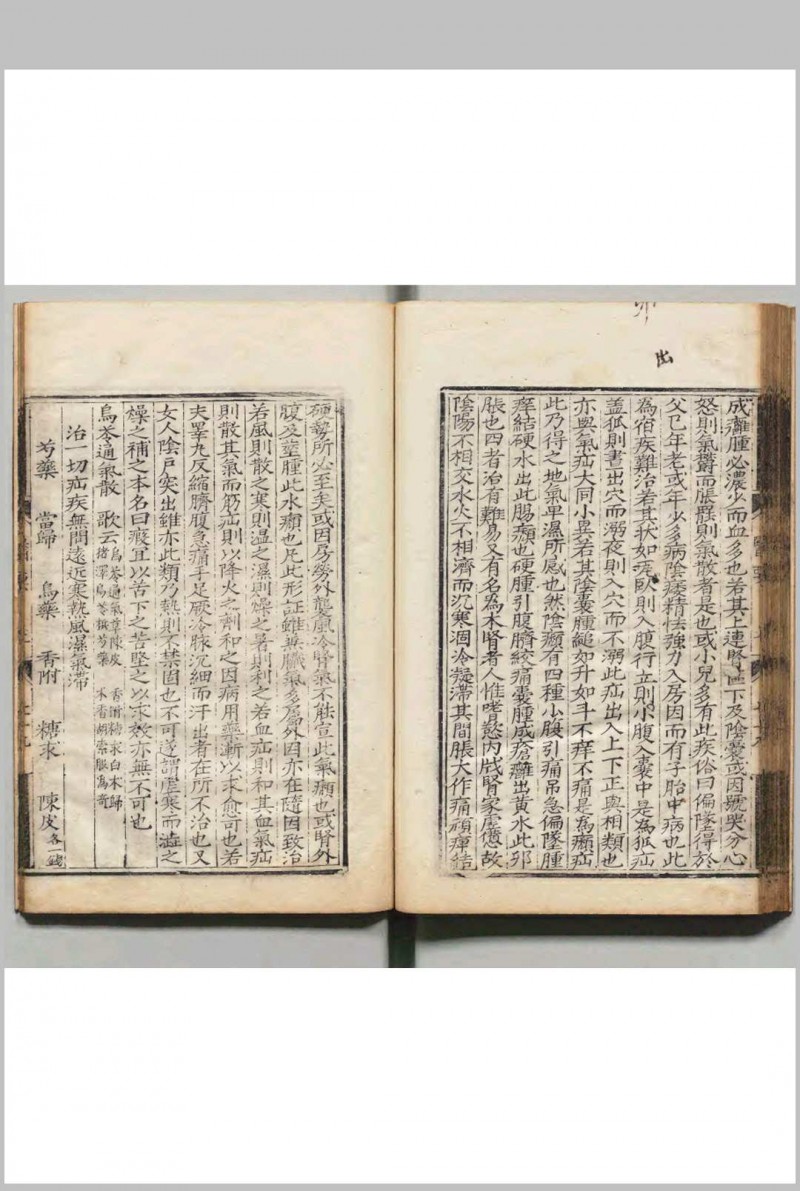 出
成癰腫必濃少而血多也若其上連腎區下及陰囊或因號哭分心
怒則氣鬱而脹哭則氣散者是也或小兒多有此疾俗曰偏墜得於
父已年老或年少多病陰痿精怯強力入房因而有子胎中病也此
為宿疾難治若其狀如瓦臥則入腹行立則小腹入囊中是為狐疝
盖狐則晝出穴而溺夜則入穴而不溺此疝出入上下正與相類也
亦與氣疝大同小異若其陰囊腫縋如升如斗不痒不痛是為㿗疝
此乃得之地氣卑濕所感也然陰㿗有四種小腹引痛吊急偏墜腫
痒結硬水出此腸㿗也硬腫引腹臍絞痛囊腫成瘡癰出黃水此卵
脹也四者治有難易又有名為木腎者人惟嗜慾內戕腎家虛憊故
陰陽不相交水火不相濟而沉寒涸冷凝滯其間脹大作痛頑痺結
硬勢所必至矣或因房勞外襲風冷腎氣不能宣此氣㿗也或腎外
腹及莖腫此水㿗也凡此形証雖無臟氣多屬外因亦在隨因致治
若風則散之寒則温之濕則燥之暑則利之若血疝則和其血氣疝
則散其氣而筋疝則以降火之劑和之因病用藥漸以求愈可也若
夫睪丸反縮臍腹急痛手足厥冷脉沉細而汗出者在所不治也又
女人陰戶突出雖亦此類乃熱則不禁固也不可遂謂虛寒而澁之
燥之補之本名曰瘕宜以苦下之苦堅之以求效亦無不可也
烏苓通氣散 歌云 烏苓通氣草陳皮 香附糖求白木歸
猪澤烏苓梹芍藥 木香胡索服為奇
治一切疝疾無問遠近寒熱風濕氣滯
芍藥 當歸 烏藥 香附 糖求 陳皮各一錢